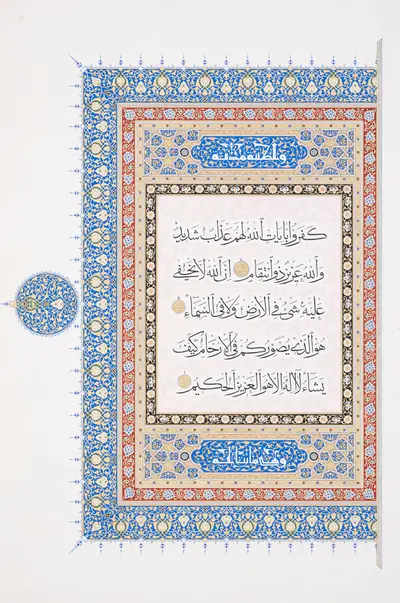 كفروا بآيات الله لهم عذاب شديد
والله عزيز ذو انتقام ان الله لا يخفى
عليه شئ في الارض ولا في السماء
هو الذي يصوركم في الارحام كيف
يشاء لا اله الا هو العزيز الحكيم